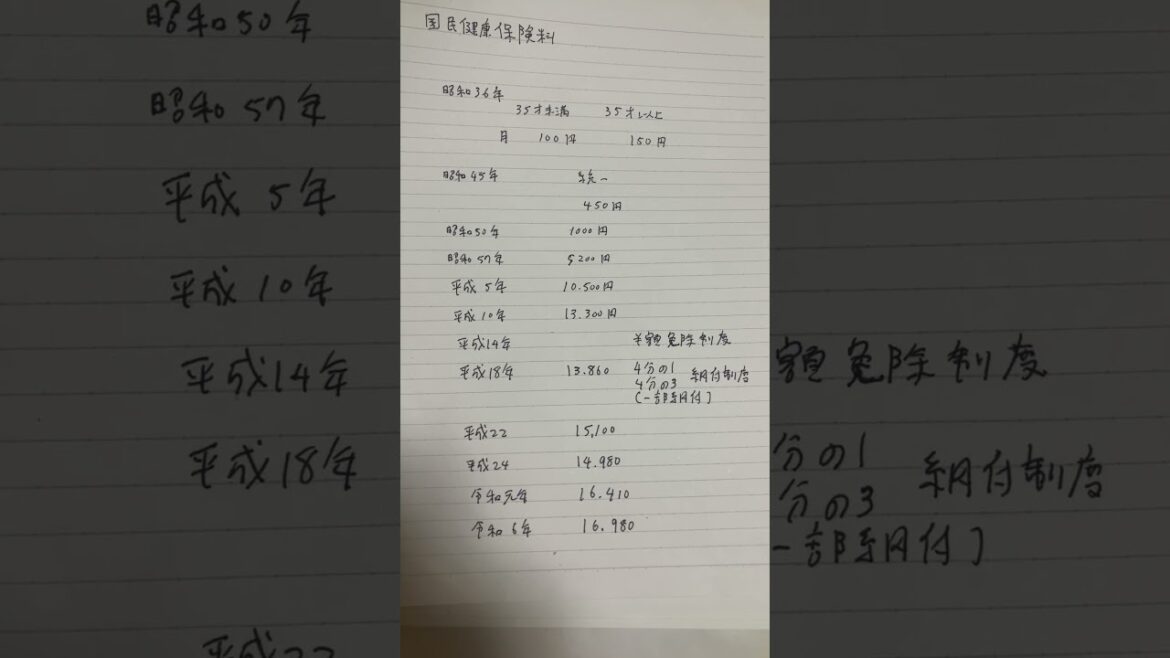 国民健康保険料
昭和36年
35才未満 35才以上
月 100円 150円
昭和45年 統一
450円
昭和50年 1000円
昭和57年 5200円
平成 5年 10.500円
平成 10年 13.300円
平成14年 半額免除制度
平成18年 13.860 4分の1 納付制度
4分の3
(一部納付)
平成22 15,100
平成24 14.980
令和元年 16.410
令和6年 16.980
昭和50年
昭和57年
平成 5年
平成 10年
平成14年
平成18年
平成22
額免除制度
分の1 納付制度
分の3
一部納付)